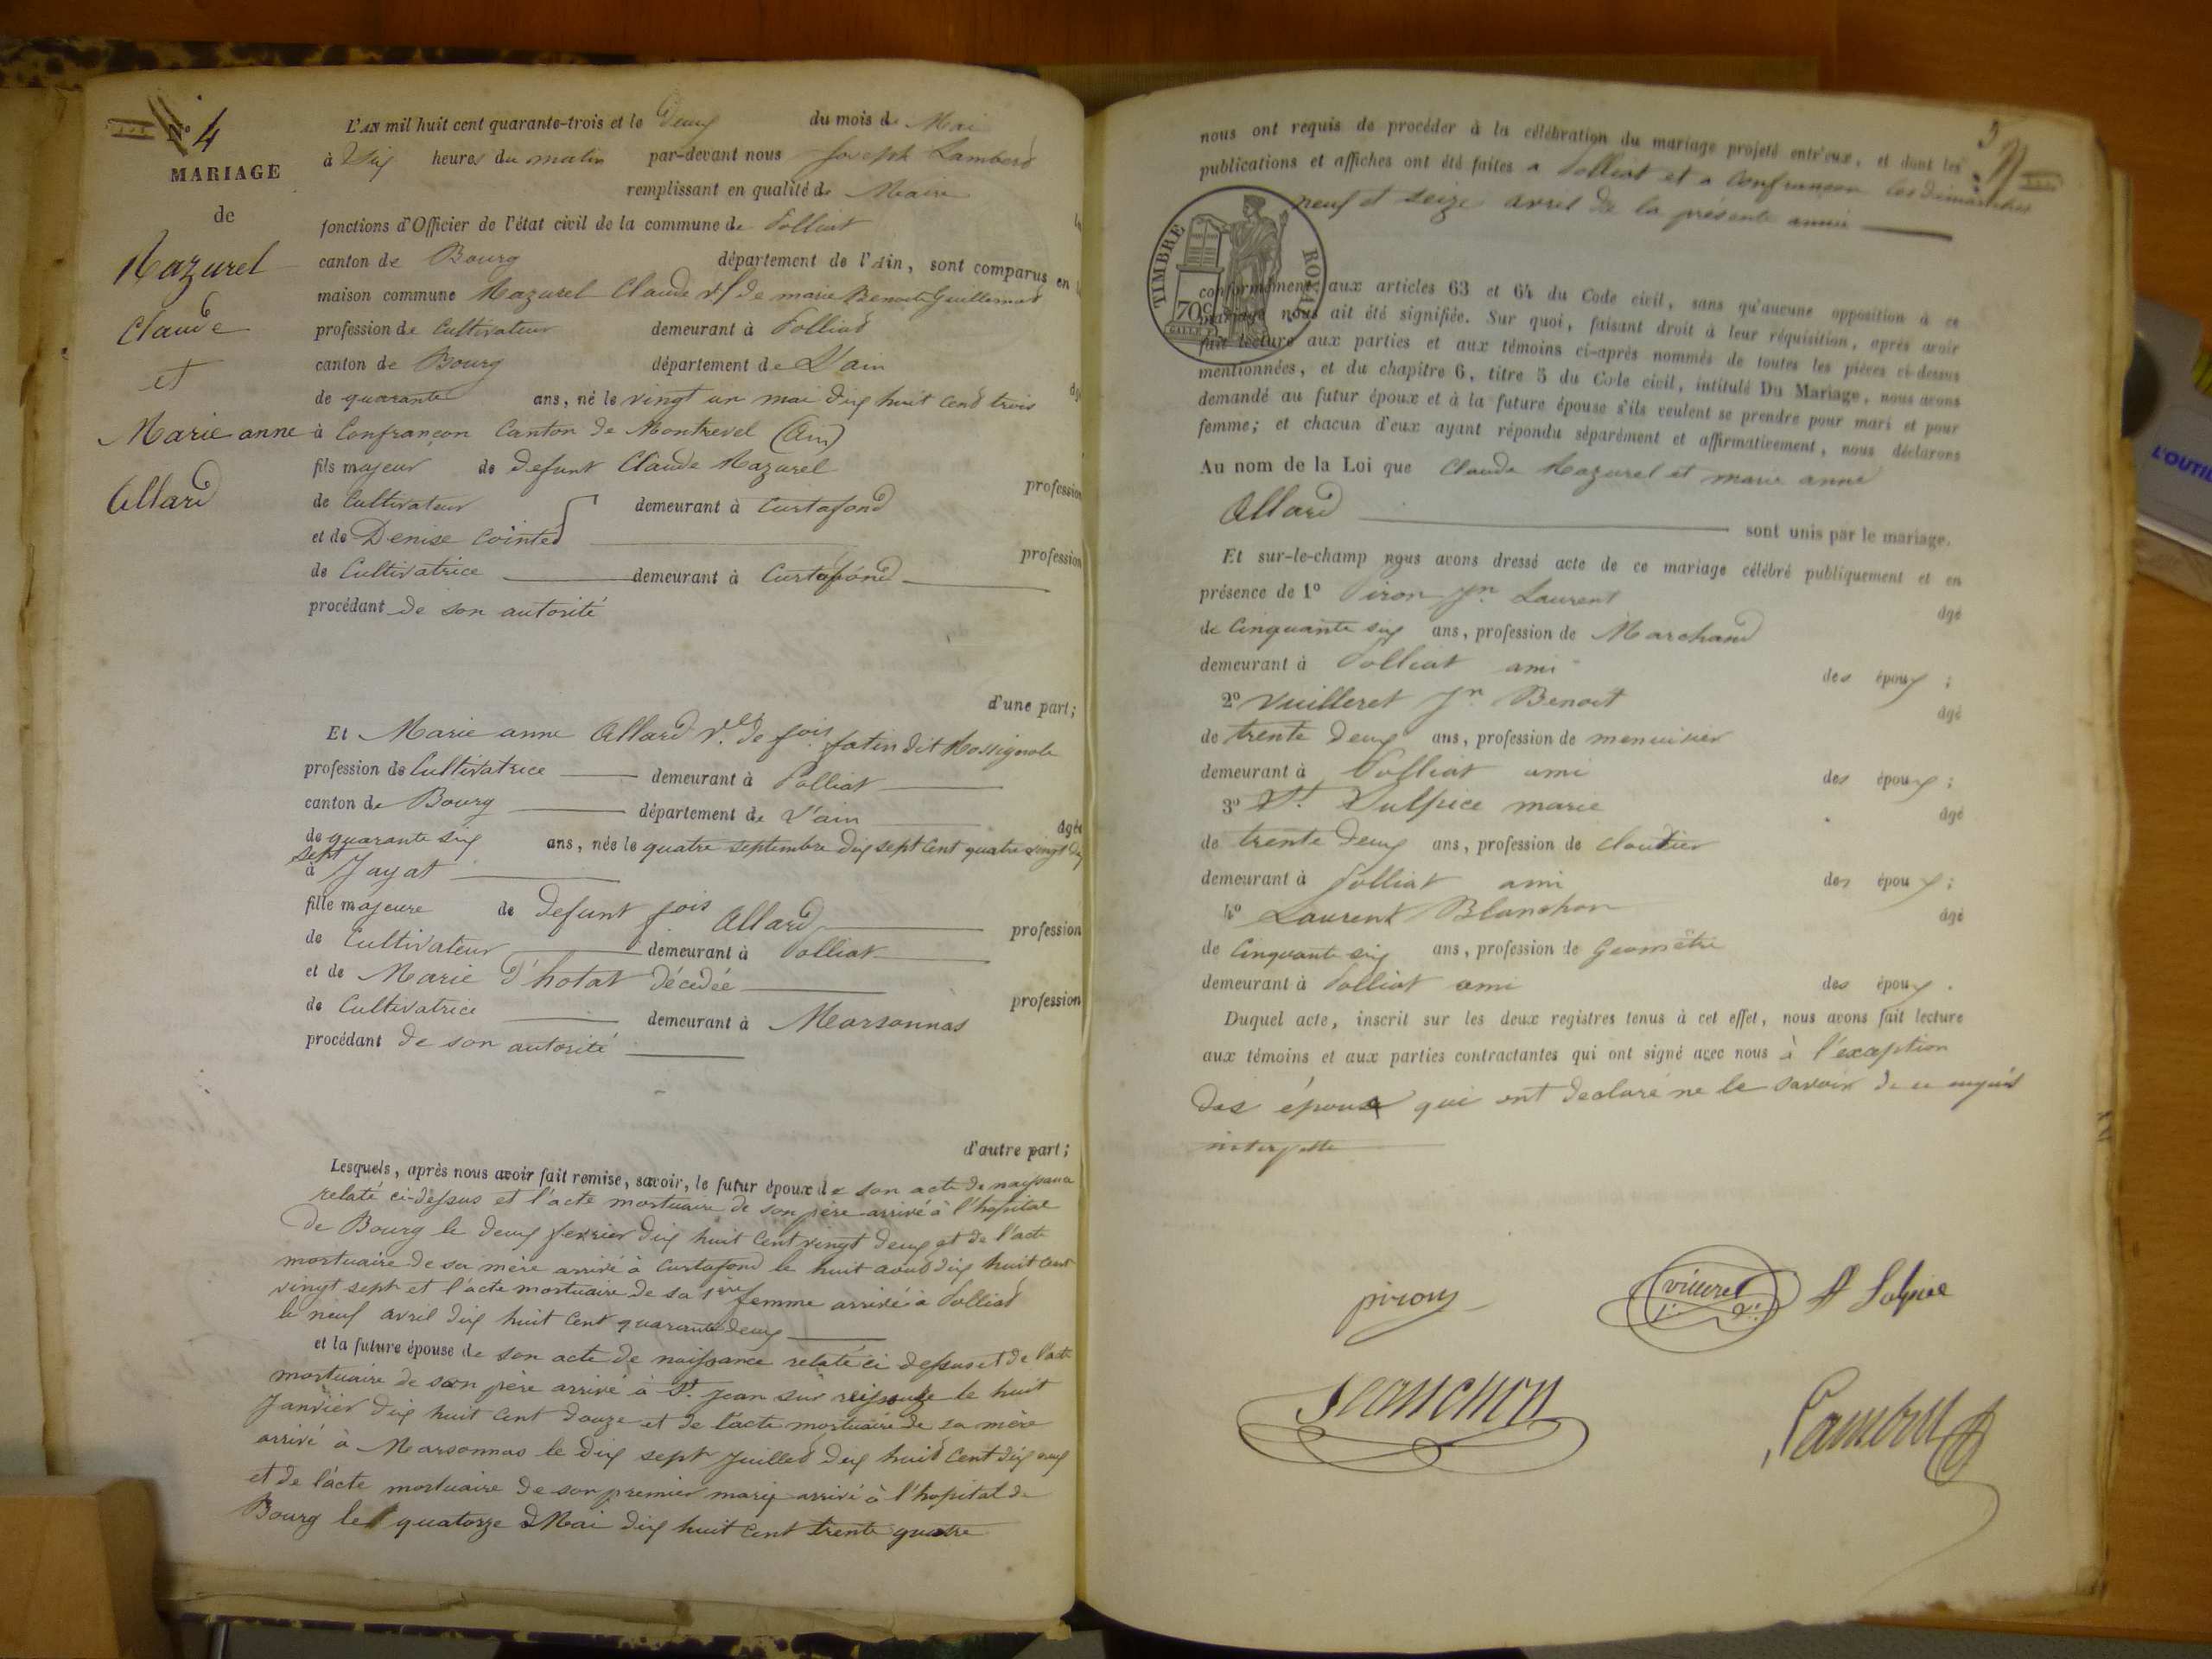 N° 4
MARIAGE
de
Mazurel
Claude
et
Marie anne
Allard
L'AN mil huit cent quarante-trois et le Deux du mois de Mai
à Dix heures du matin par-devant nous Joseph Lambert
remplissant en qualité de Maire
fonctions d'Officier de l'état civil de la commune de Polliat
canton de Bourg département de l'Ain, sont comparus en
maison commune Mazurel Claude vf de marie Benoite Guillemot
profession de Cultivateur demeurant à Polliat
canton de Bourg département de L'ain
de quarante ans, né le vingt un mai dix huit cent trois
à Confrançon Canton de Montrevel (Ain)
fils majeur de defunt Claude Mazurel profession
de Cultivateur demeurant à Curtafond
et de Denise Cointet profession
de Cultivatrice demeurant à Curtafond
procédant de son autorité
d'une part;
Et Marie anne Allard Ve. de fois fatin dit Rossignole
profession de Cultivatrice demeurant à Polliat
canton de Bourg département de L'ain âgée
de quarante six ans, née le quatre septembre dix sept cent quatre vingt dix
sept
à Jayat
fille majeure de defunt fois Allard profession
de Cultivateur demeurant à Polliat
et de Marie D'hotat décédée profession
de Cultivatrice demeurant à Marsonnas
procédant de son autorité
d'autre part;
Lesquels, après nous avoir fait remise, savoir, le futur époux de son acte de naissance
relaté ci-dessus et l'acte mortuaire de son père arrivé à l'hopital
de Bourg le deux fevrier dix huit Cent vingt deux et de l'acte
mortuaire de sa mère arrivé à Curtafond le huit aout dix huit cent
vingt sept et l'acte mortuaire de sa 1ère femme arrivé à Polliat
le neuf avril dix huit Cent quarante deux
et la future épouse de son acte de naissance relaté ci dessus et de l'acte
mortuaire de son père arrivé à St. jean sur reissouze le huit
Janvier dix huit Cent douze et de l'acte mortuaire de sa mère
arrivé à Marsonnas le dix sept Juillet dix huit Cent dix neuf
et de l'acte mortuaire de son premier mary arrivé à l'hopital de
Bourg le quatorze Mai dix huit Cent trente quatre
nous ont requis de procéder à la célébration du mariage projeté entr'eux, et dont les
publications et affiches ont été faites a Polliat et a Confrançon les dimanches
neuf et seize avril de la présente année
TIMBRE ROYAL
70c
conformément aux articles 63 et 64 du Code civil, sans qu'aucune opposition à ce
mariage nous ait été signifiée. Sur quoi, faisant droit à leur réquisition, après avoir
fait lecture aux parties et aux témoins ci-après nommés de toutes les pièces ci-dessus
mentionnées, et du chapitre 6, titre 5 du Code civil, intitulé Du Mariage, nous avons
demandé au futur époux et à la future épouse s'ils veulent se prendre pour mari et pour
femme; et chacun d'eux ayant répondu séparément et affirmativement, nous déclarons
Au nom de la Loi que Claude Mazurel et marie anne
Allard sont unis par le mariage.
Et sur-le-champ nous avons dressé acte de ce mariage célébré publiquement et en
présence de 1° Piron Jn. Laurent âgé
de Cinquante six ans, profession de Marchand
demeurant à Polliat ami des époux;
2° Vuilleret Jn. Benoit âgé
de trente deux ans, profession de menuisier
demeurant à Polliat ami des époux;
3° St. Sulpice marie âgé
de trente deux ans, profession de cloutier
demeurant à Polliat ami des époux;
4° Laurent Blanchon âgé
de Cinquante six ans, profession de Geomètre
demeurant à Polliat ami des époux.
Duquel acte, inscrit sur les deux registres tenus à cet effet, nous avons fait lecture
aux témoins et aux parties contractantes qui ont signé avec nous à l'exception
des époux qui ont déclaré ne le savoir de ce enquis
interpellé
piron
Lambert
L'OUTIL